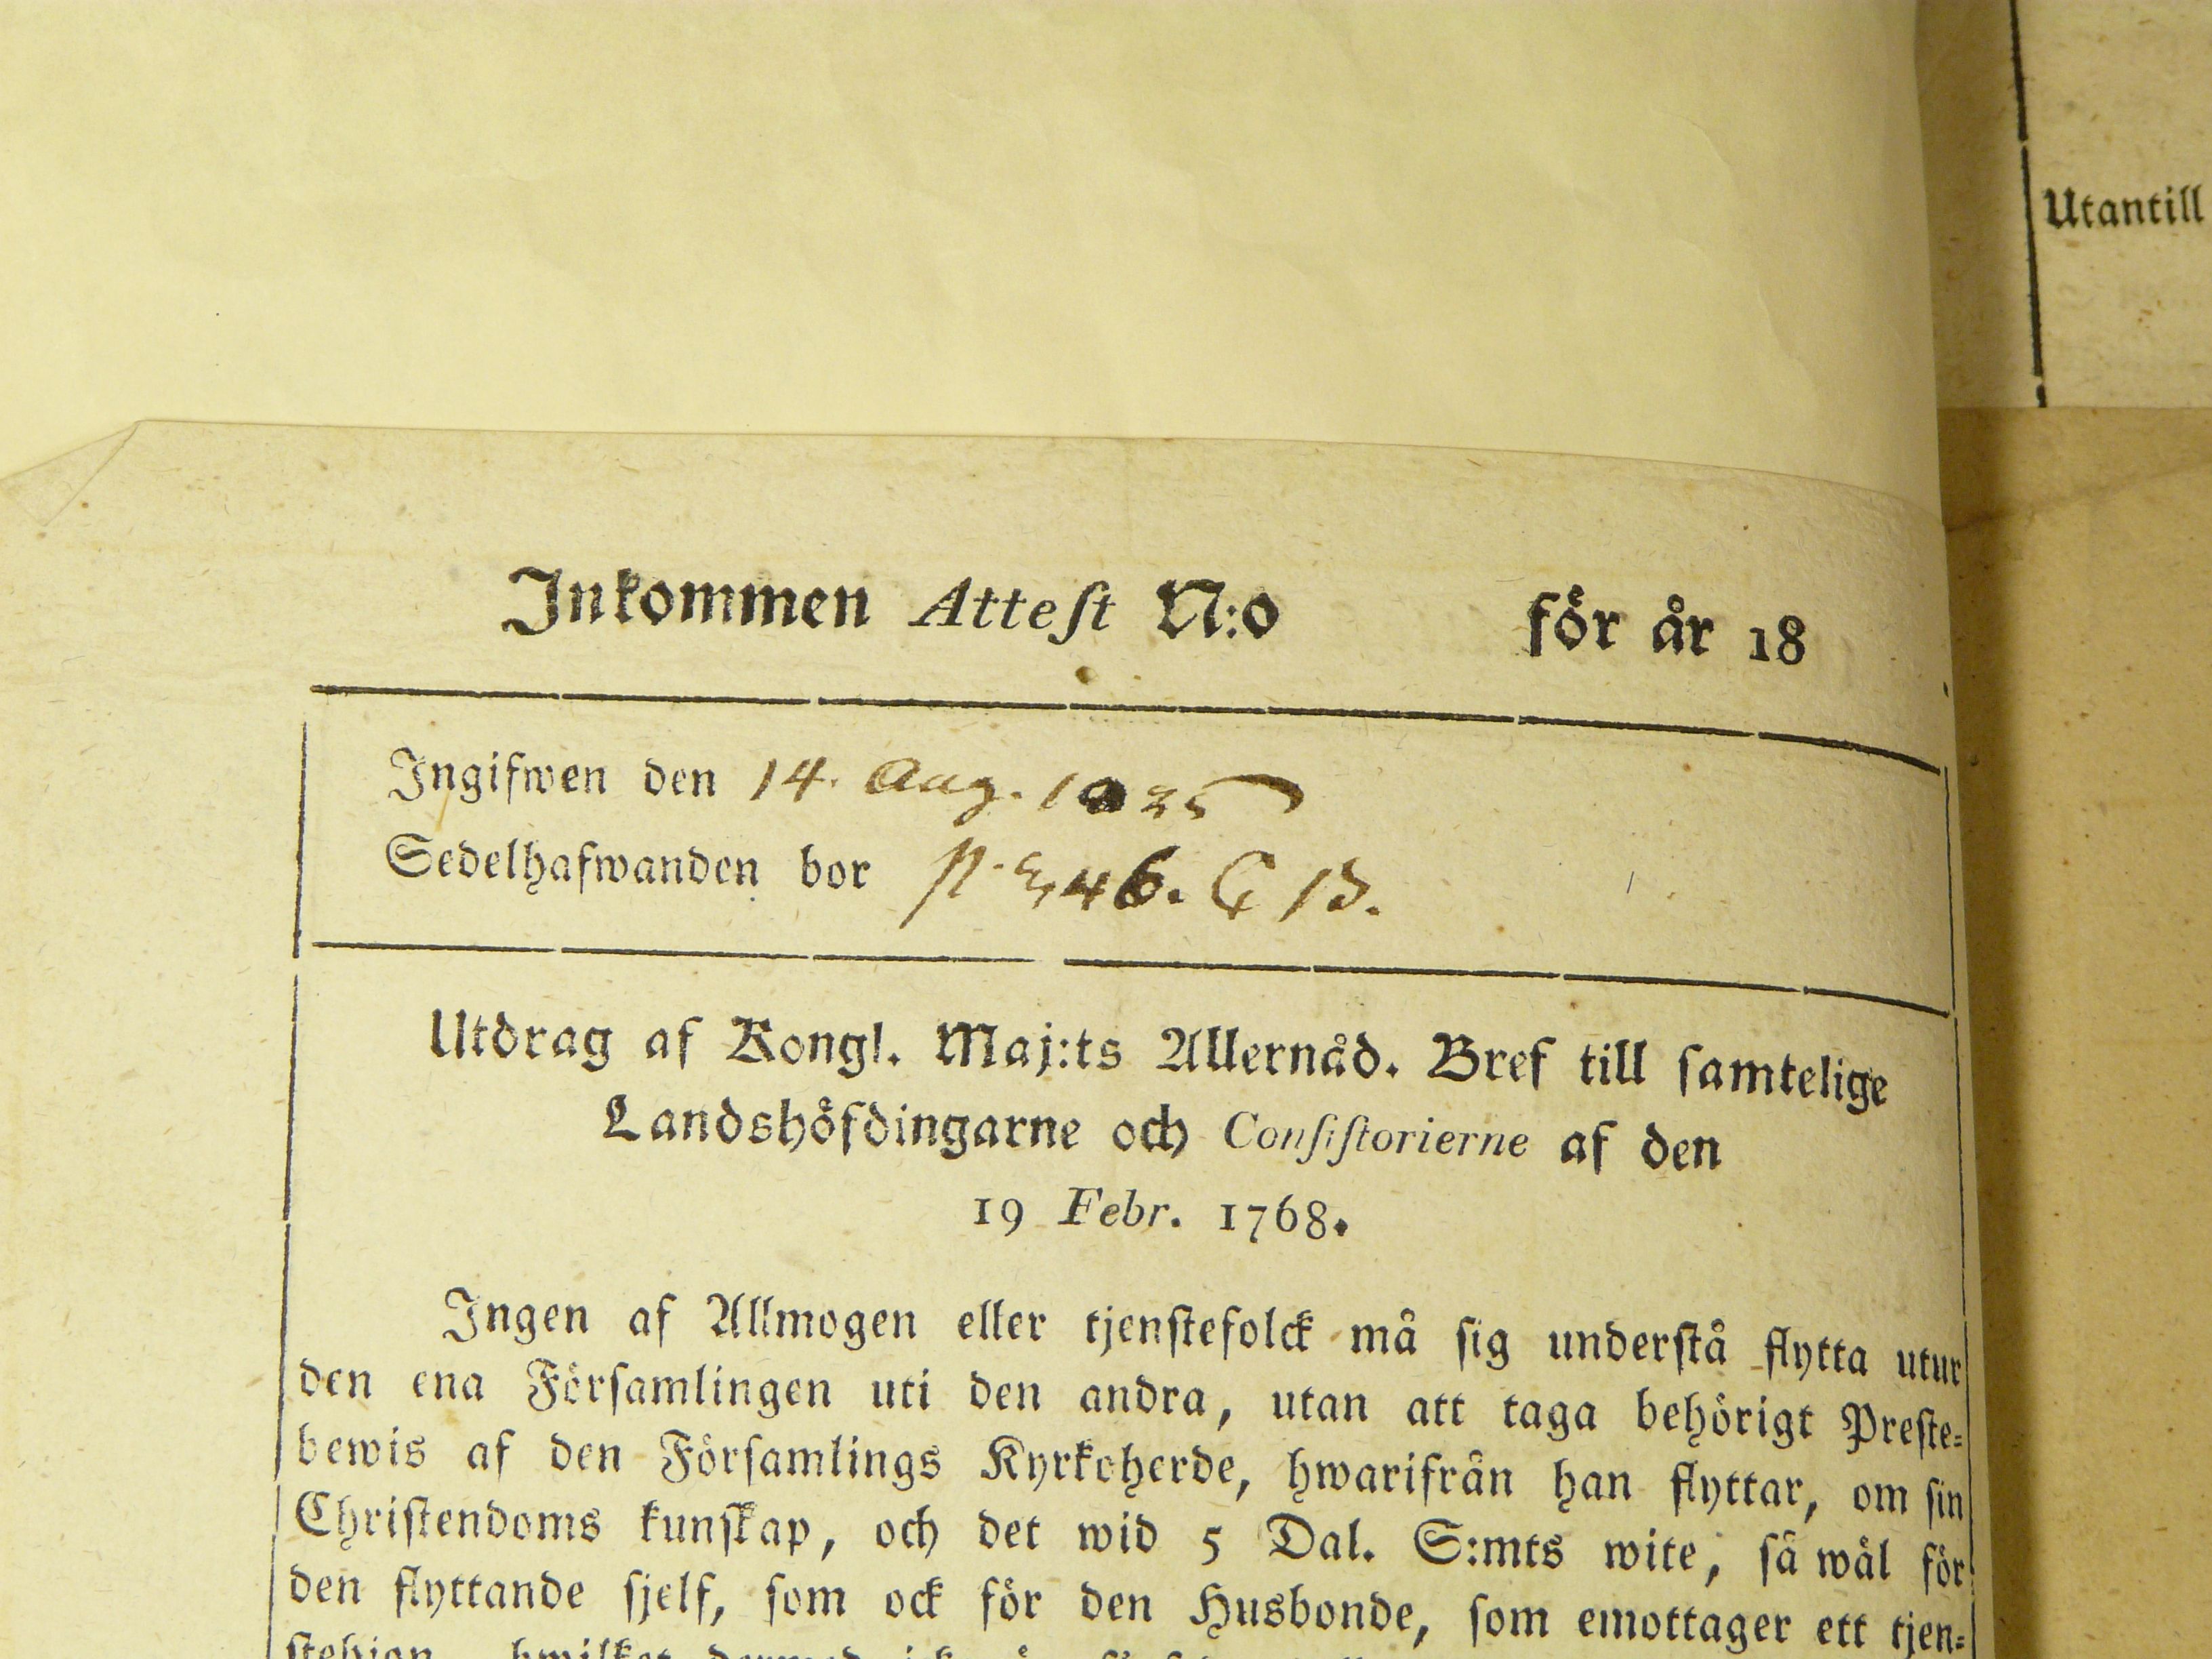 Utantill
Inkommen Attest N:o för år 18
Ingifwen den 14. Aug. 1835
Sedelhafwanden bor 46. 13.
Utdrag af Kongl. Maj:ts Allernåd. Bref till samtelige
Landshöfdingarne och Consistorierne af den
19 Febr. 1768.
Ingen af Allmogen eller tjenstefolck må sig understå flytta utur
den ena Församlingen uti den andra, utan att taga behörigt Preste-
bewis af den Församlings Kyrkoherde, hwarifrån han flyttar, om sin
Christendoms kunskap, och det wid 5 Dal. S:mts wite, så wäl för
den flyttande sjelf, som ock för den Husbonde, som emottager ett tjen-
stehjon, hwilket dermed ick